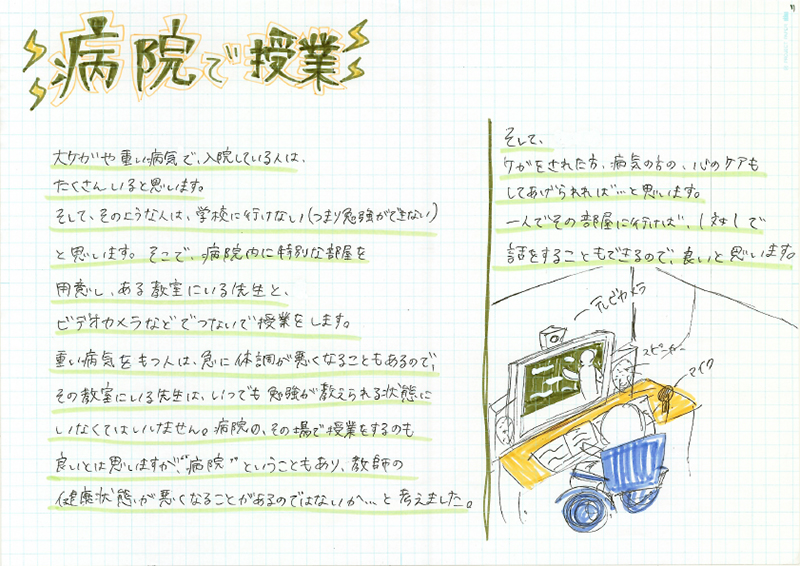 病院で授業
大ケガや重い病気で、入院している人は、
たくさんいると思います。
そして、そのような人は、学校に行けない(つまり勉強ができない)
と思います。そこで、病院内に特別な部屋を
用意し、ある教室にいる先生と、
ビデオカメラなどでつないで授業をします。
重い病気をもつ人は、急に体調が悪くなることもあるので、
その教室にいる先生は、いつでも勉強が教えられる状態に
いなくてはいけません。病院の、その場で授業をするのも
良いとは思いますが、"病院"ということもあり、教師の
健康状態が悪くなることがあるのではないか…と考えました。
そして、
ケガをされた方、病気の方の、心のケアも
してあげられれば…と思います。
一人でその部屋に行けば、1対1で
話をすることもできるので、良いと思います。
テレビカメラ
スピーカー
マイク